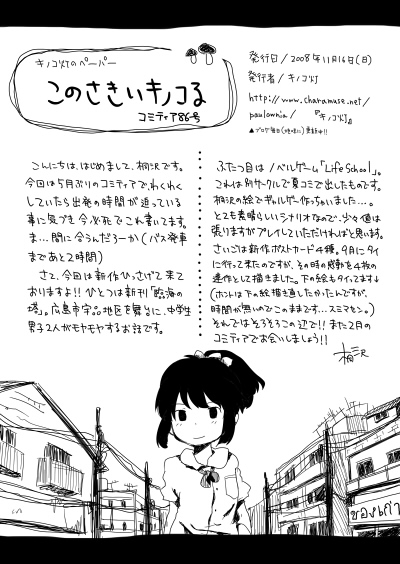 キノコ灯のペーパー
このさきいキノコる
コミティア86号
発行日/2008年11月16日(日)
発行者/キノコ灯
http://www.charamuse.net/
paulownia/ 『キノコ灯』
▲ブログ毎日(地味に)更新中!!
こんにちは、はじめまして、桐沢です。
今回は5月ぶりのコミティアで、わくわく
していたら出発の時間が迫っている
事に気づき今必死でこれ書いてます。
ま…間に合うんだろーか(バス発車
まであと2時間)
さて、今回は新作ひっさげて来て
おりますよ!!ひとつは新刊「臨海の
塔」。広島市宇品地区を舞台に、中学生
男子2人がモヤモヤするお話です。
ふたつ目はノベルゲーム「Life School」。
これは別サークルで夏コミで出したものです。
桐沢の絵でギャルゲー作っちゃいました…。
とても素晴らしいシナリオなので、少々値は
張りますがプレイしていただければと思います。
さいごは新作ポストカード4種。9月にタイ
に行って来たのですが、その時の感動を4枚の
連作として描きました。下の絵もタイってます↓
(ホントは下の絵描き直したかったんですが、
時間が無いのでこのままで…スミマセン。)
それではそろそろこの辺で!!また2月の
コミティアでお会いしましょう!!
桐沢
ของเก่า